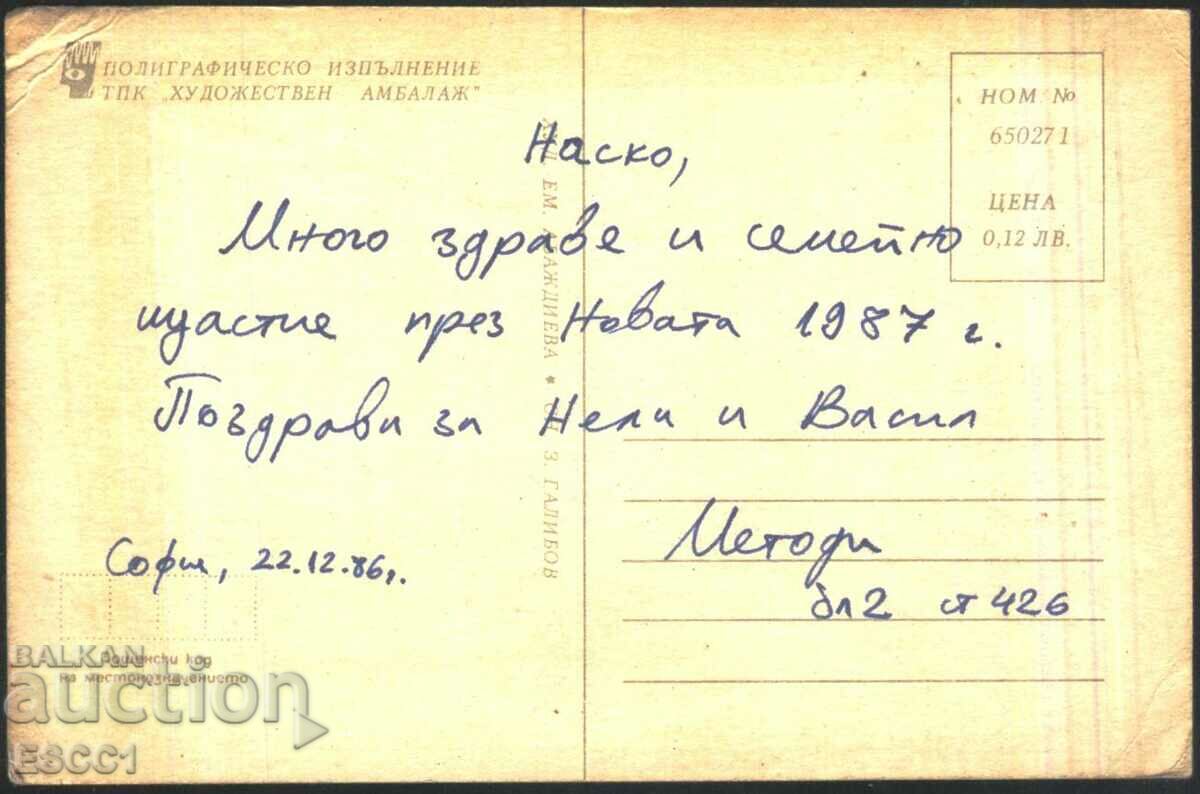 ПОЛИГРАФИЧЕСКО ИЗПЪЛНЕНИЕ
ТПК „ХУДОЖЕСТВЕН АМБАЛАЖ"
НОМ. №
650271
ЦЕНА
0,12 ЛВ.
Наско,
Много здраве и семейно
щастие през Новата 1987 г.
Поздрави за Нели и Васил
Методи
бл2 ст 426
София, 22.12.86г.
ЕМ.
З. ГАЛИБОВ
Пощенски код
на местоназначението
BALKAN
auction
ESCC1